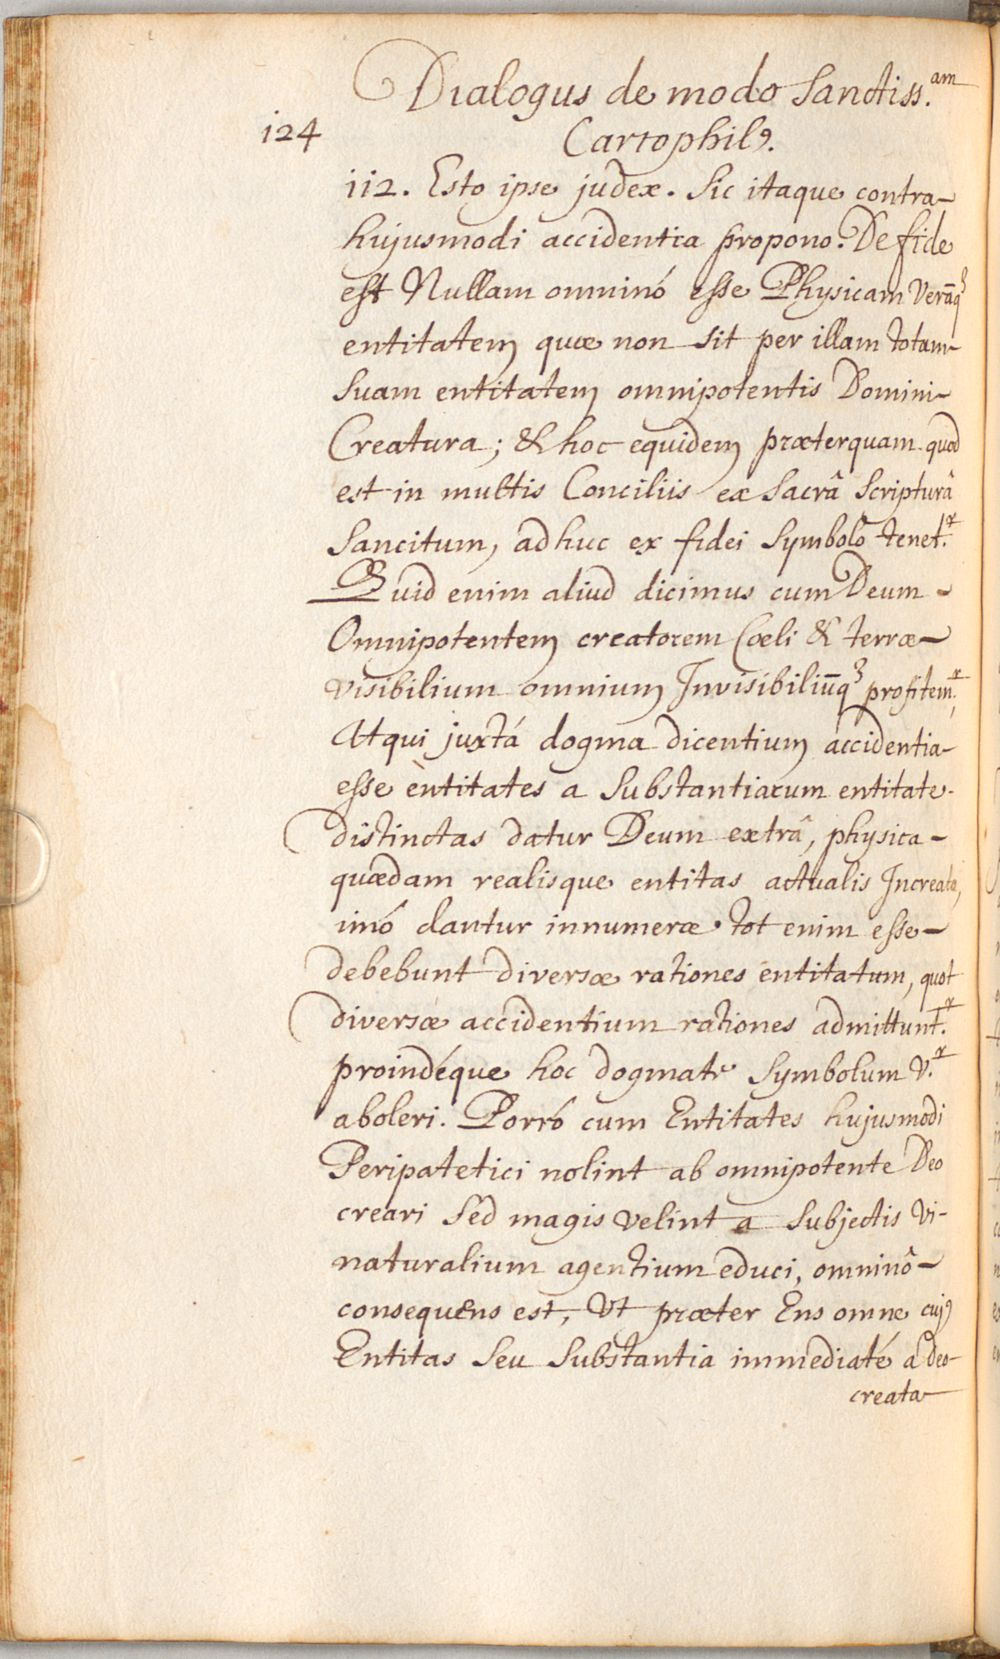 Dialogus de modo Sanctiss.am
124
Cartophil9.
112. Esto ipse judex. Sic itaque contra-
hujusmodi accidentia propono. De fide
est Nullam omninó esse Physicam Verāq3
entitatem quæ non sit per illam totam-
Suam entitatem omnipotentis Domini-
Creatura; & hoc equidem præterquam quod
est in multis Conciliis ex Sacrâ Scripturâ
Sancitum, adhuc ex fidei Symbolo tenet.r
Quid enim aliud dicimus cum Deum -
Omnipotentem creatorem Cœli & terræ-
visibilium omnium Invisibiliūq3 profitem.r
Atqui juxtá dogma dicentium accidentia-
esse èntitates a Substantiarum entitate-
distinctas datur Deum extrâ, physica-
quædam realisque entitas actualis Increata,
imó dantur innumeræ. tot enim esse-
debebunt diversæ rationes entitatum, quot
diversæ accidentium rationes admittunt.r
proindéque hoc dogmate Symbolum V.r
aboleri. Porró cum Entitates hujusmodi
Peripatetici nolint ab omnipotente Deo
creari Sed magis velint a Subjectis Vi-
naturalium agentium educi, omninô-
consequens est, Vt præter Ens omne cuj9
Entitas Seu Substantia immediaté a Deo-
creata